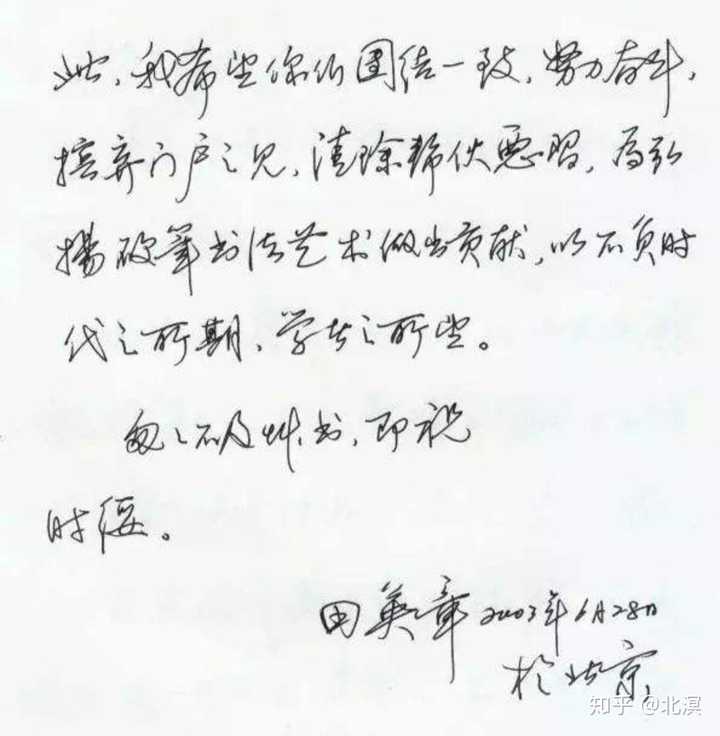 此,我希望你们团结一致,努力奋斗,
摈弃门户之见,清除帮伙恶习,为弘
扬硬笔书法艺术做出贡献,以不负时
代之所期、学者之所望。
匆匆不及草书,即祝
时绥。
田英章2003年6月28日
于北京
知乎 @北溟